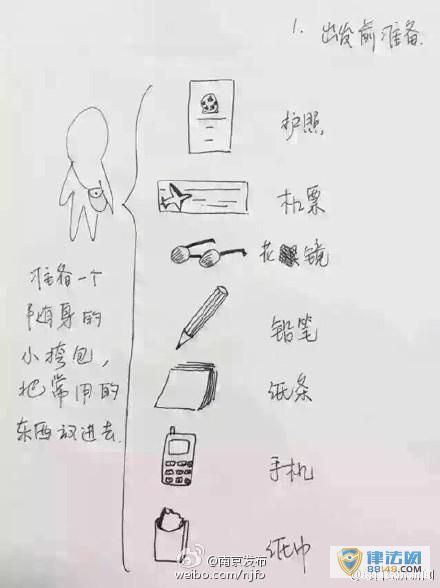 1. 出发前准备
护照
机票
花镜
铅笔
纸条
手机
纸巾
准备一个
随身的
小挎包,
把常用的
东西放进去.
@南京发布
weibo.com/njfb
律法网
88148.com